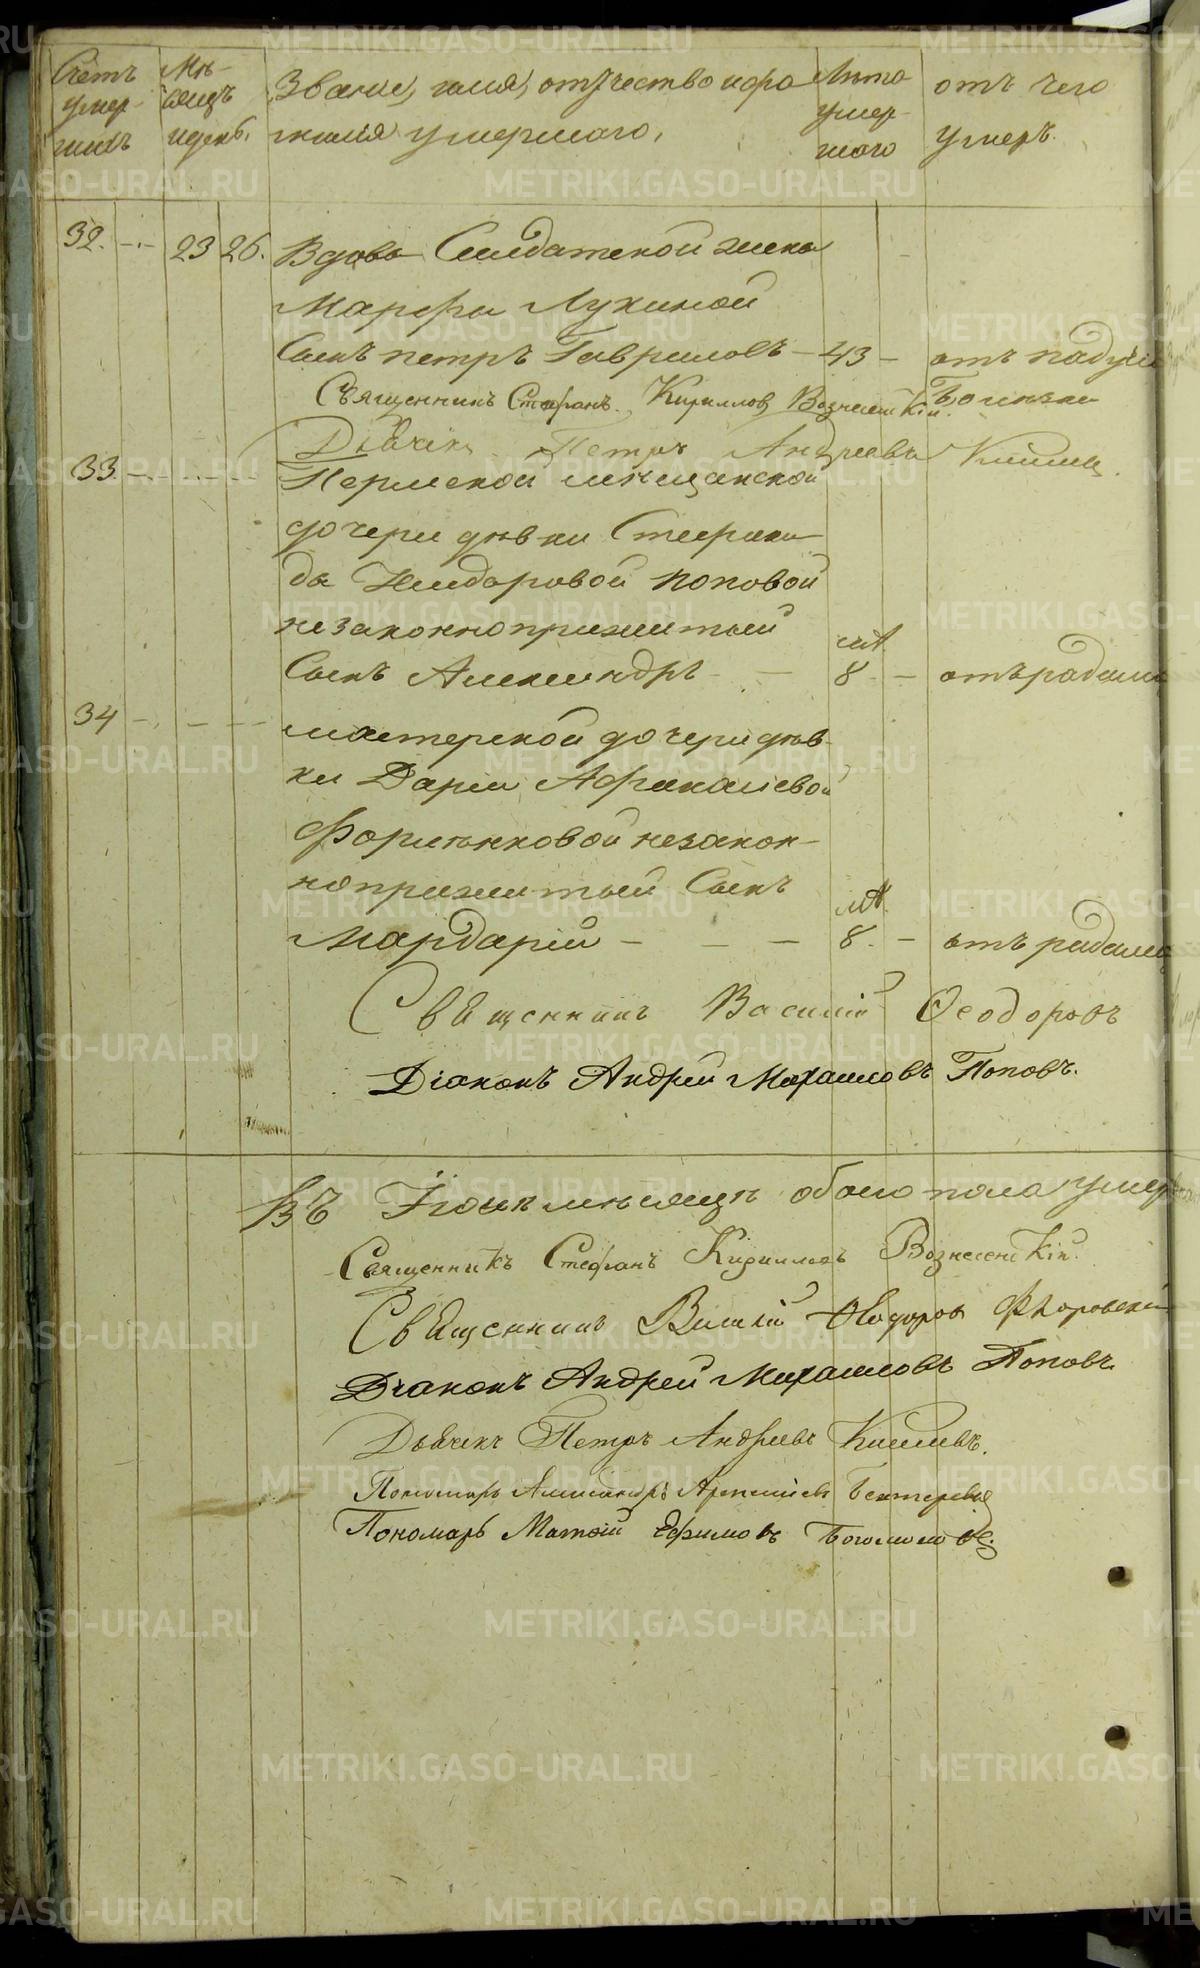 Счетъ умер- шихъ
Мѣ- сяцъ и день.
Званіе, имя, отчество и фа
милія умершаго.
Лѣта умер- шаго
отъ чего умеръ.
32. 23 26. Вдовы Солдатской жены
Марфы Лукиной
Сынъ петръ Гавриловъ - 43 - отъ падучей
Священникъ Стефанъ Кирилловъ Вознесенскій. болезни
Дьячекъ Петръ Андреевъ
33. Пермской мѣщанской
дочери дѣвки Степани
ды Исидоровой поповой
незаконноприжитый
Сынъ Александръ - 8 - отъ родимца
34 мастерской дочери дѣв-
ки Дарьи Афанасіевой
незакон-
ноприжитый Сынъ
Мардарій - - - 8. - отъ родимца
Священникъ Василій Ѳеодоровъ
Діаконъ Андрей Михаиловъ Поповъ.
Въ Іюнѣ мѣсяцѣ обоего пола умер
Священникъ Стефанъ Кирилловъ Вознесенскій.
Священникъ Василій Ѳеодоровъ Флоровскій
Діаконъ Андрей Михаиловъ Поповъ
Дьячекъ Петръ Андреевъ
Пономарь Александръ Арсеніевъ Бехтеревъ
Пономарь Матѳій Ефимовъ Богомоловъ.
METRIKI.GASO-URAL.RU